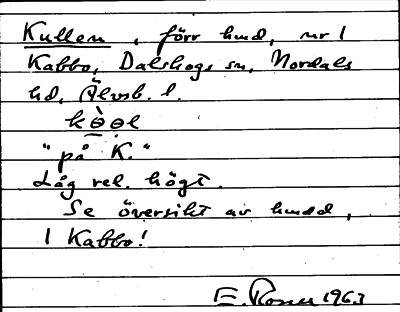 Kullen, förr hmd, nr 1
Kabbo, Dalskogs sn, Nordals
hd, Älvsb. l.
kɵ̀ɵl
"på K."
Låg rel. högt.
Se översikt av hmdd,
1 Kabbo!
E. 1963